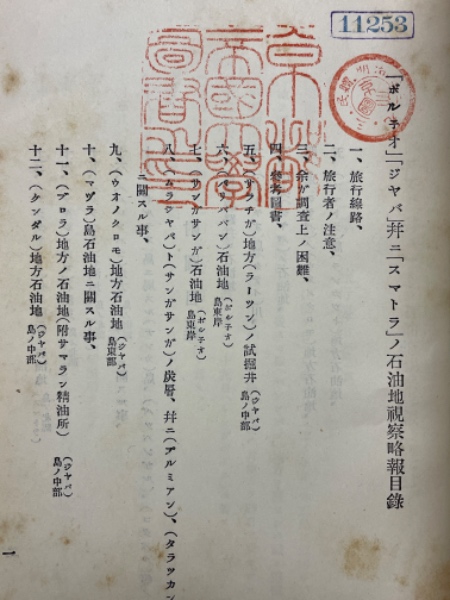 11253
「ボルネオ」「ジヤバ」幷ニ「スマトラ」ノ石油地視察略報目錄
一、旅行線路、
二、旅行者ノ注意、
三、余が調査上ノ困難、
四、參考圖書、
五、(サフチガ)地方(ラーツン)ノ試掘井 (ジヤバ)島ノ中部
六、(バリパパン)石油地 (ボルネオ)島東岸
七、(サンガサンガ)石油地 (ボルネオ)島東岸
八、(バランジヤパ)ト(サンガサンガ)ノ炭層、幷ニ(プルミアン)、(タラツカン
ニ關スル事、
九、(ウオノクロモ)地方石油地 (ジヤバ)島東部
十、(マヅラ)島石油地ニ關スル事、
十一、(ブロラ)地方ノ石油地(附サマラン精油所) (ジヤバ)島ノ中部
十二、(ケンダル)地方石油地 (ジヤバ)島ノ中部
一